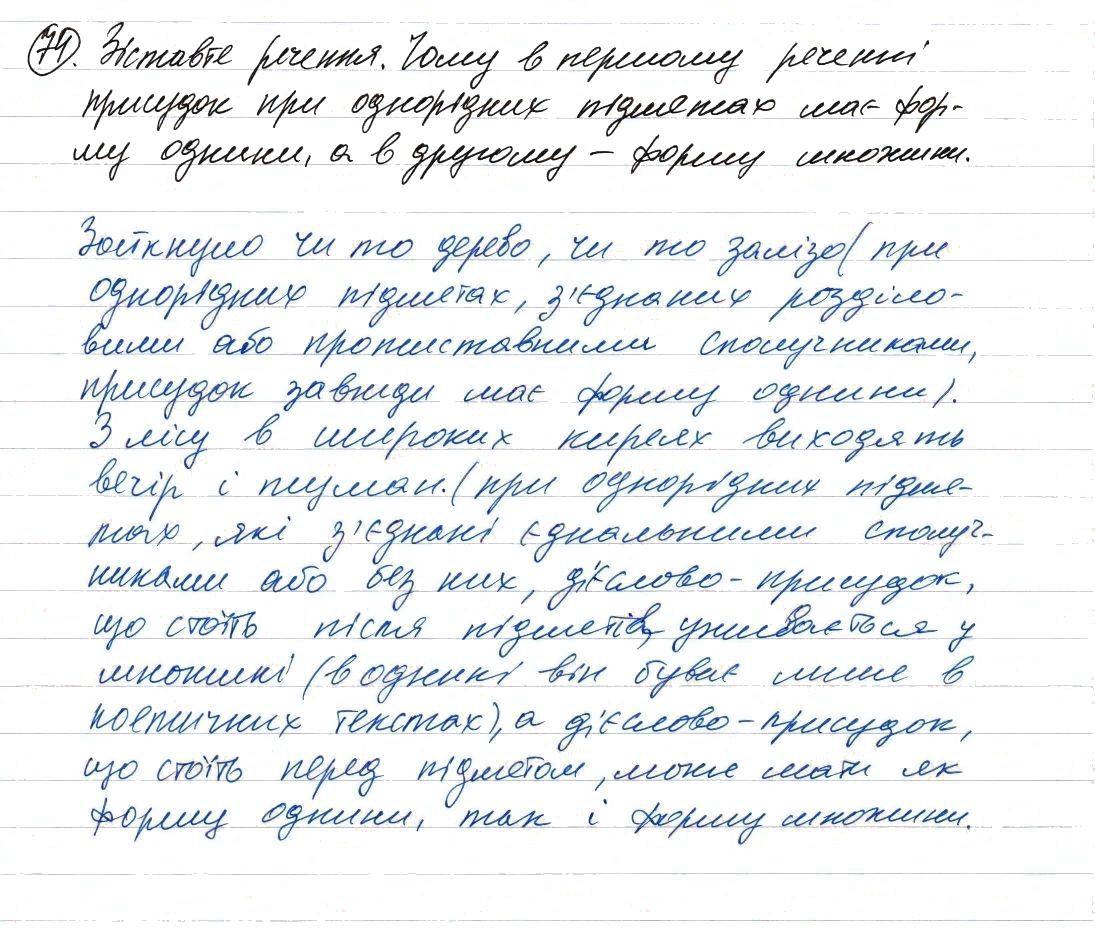 71. Зіставте речення. Чому в першому реченні
присудок при однорідних підметах має фор-
му однини, а в другому – форму множини.
Зойкнуло чи то дерево, чи то залізо (при
однорідних підметах, з'єднаних розділо-
вими або протиставними сполучниками,
присудок завжди має форму однини).
З лісу в широких киреях виходять
вечір і туман. (при однорідних підме-
тах, які з'єднані єднальними сполуч-
никами або без них, дієслово-присудок,
що стоїть після підметів, уживається у
множині (в однині він буває лише в
поетичних текстах), а дієслово-присудок,
що стоїть перед підметом, може мати як
форму однини, так і форму множини.